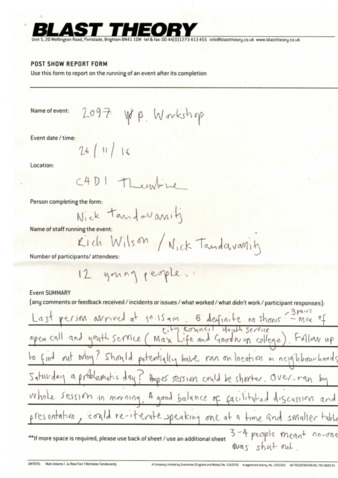 BLAST THEORY
Unit 5, 20 Wellington Road, Portslade, Brighton BN41 1DN tel & fax: 00 44(0)1273 413 455 info@blasttheory.co.uk www.blasttheory.co.uk
POST SHOW REPORT FORM
Use this form to report on the running of an event after its completion
Name of event: 2097 yp. Workshop
Event date / time:
26/11/16
Location:
C4DI
Person completing the form:
Nick Tandavanitj
Name of staff running the event:
Rich Wilson / Nick Tandavanitj
Number of participants/ attendees:
12 young people.
Event SUMMARY
[any comments or feedback received / incidents or issues / what worked / what didn't work / participant responses]:
Last person arrived at 10.15am. 6 definite no shows - 3 pairs - mix of
City Council Youth Service
open call and youth service (Max Life and Goodwin college). Follow up
to find out why? Should potentially have ran on location in neighbourhoods
Saturday a problematic day? session could be shorter. Over-ran by
whole session in morning. A good balance of facilitated discussion and
presentation, could re-iterate speaking one at a time and smaller table
**If more space is required, please use back of sheet / use an additional sheet 3-4 people meant no-one
was shut out.
ARTISTS: Matt Adams / Ju Row Farr / Nicholas Tandavanitj